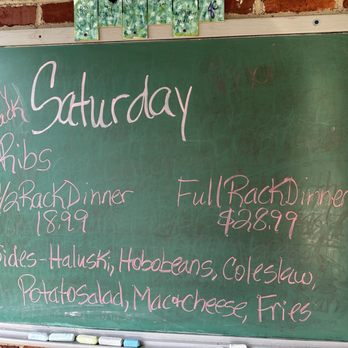 Saturday
Ribs
1/2 Rack Dinner
18.99
Full Rack Dinner
$28.99
Sides - Haluski, Hobobeans, Coleslaw,
Potatosalad, Mac+cheese, Fries